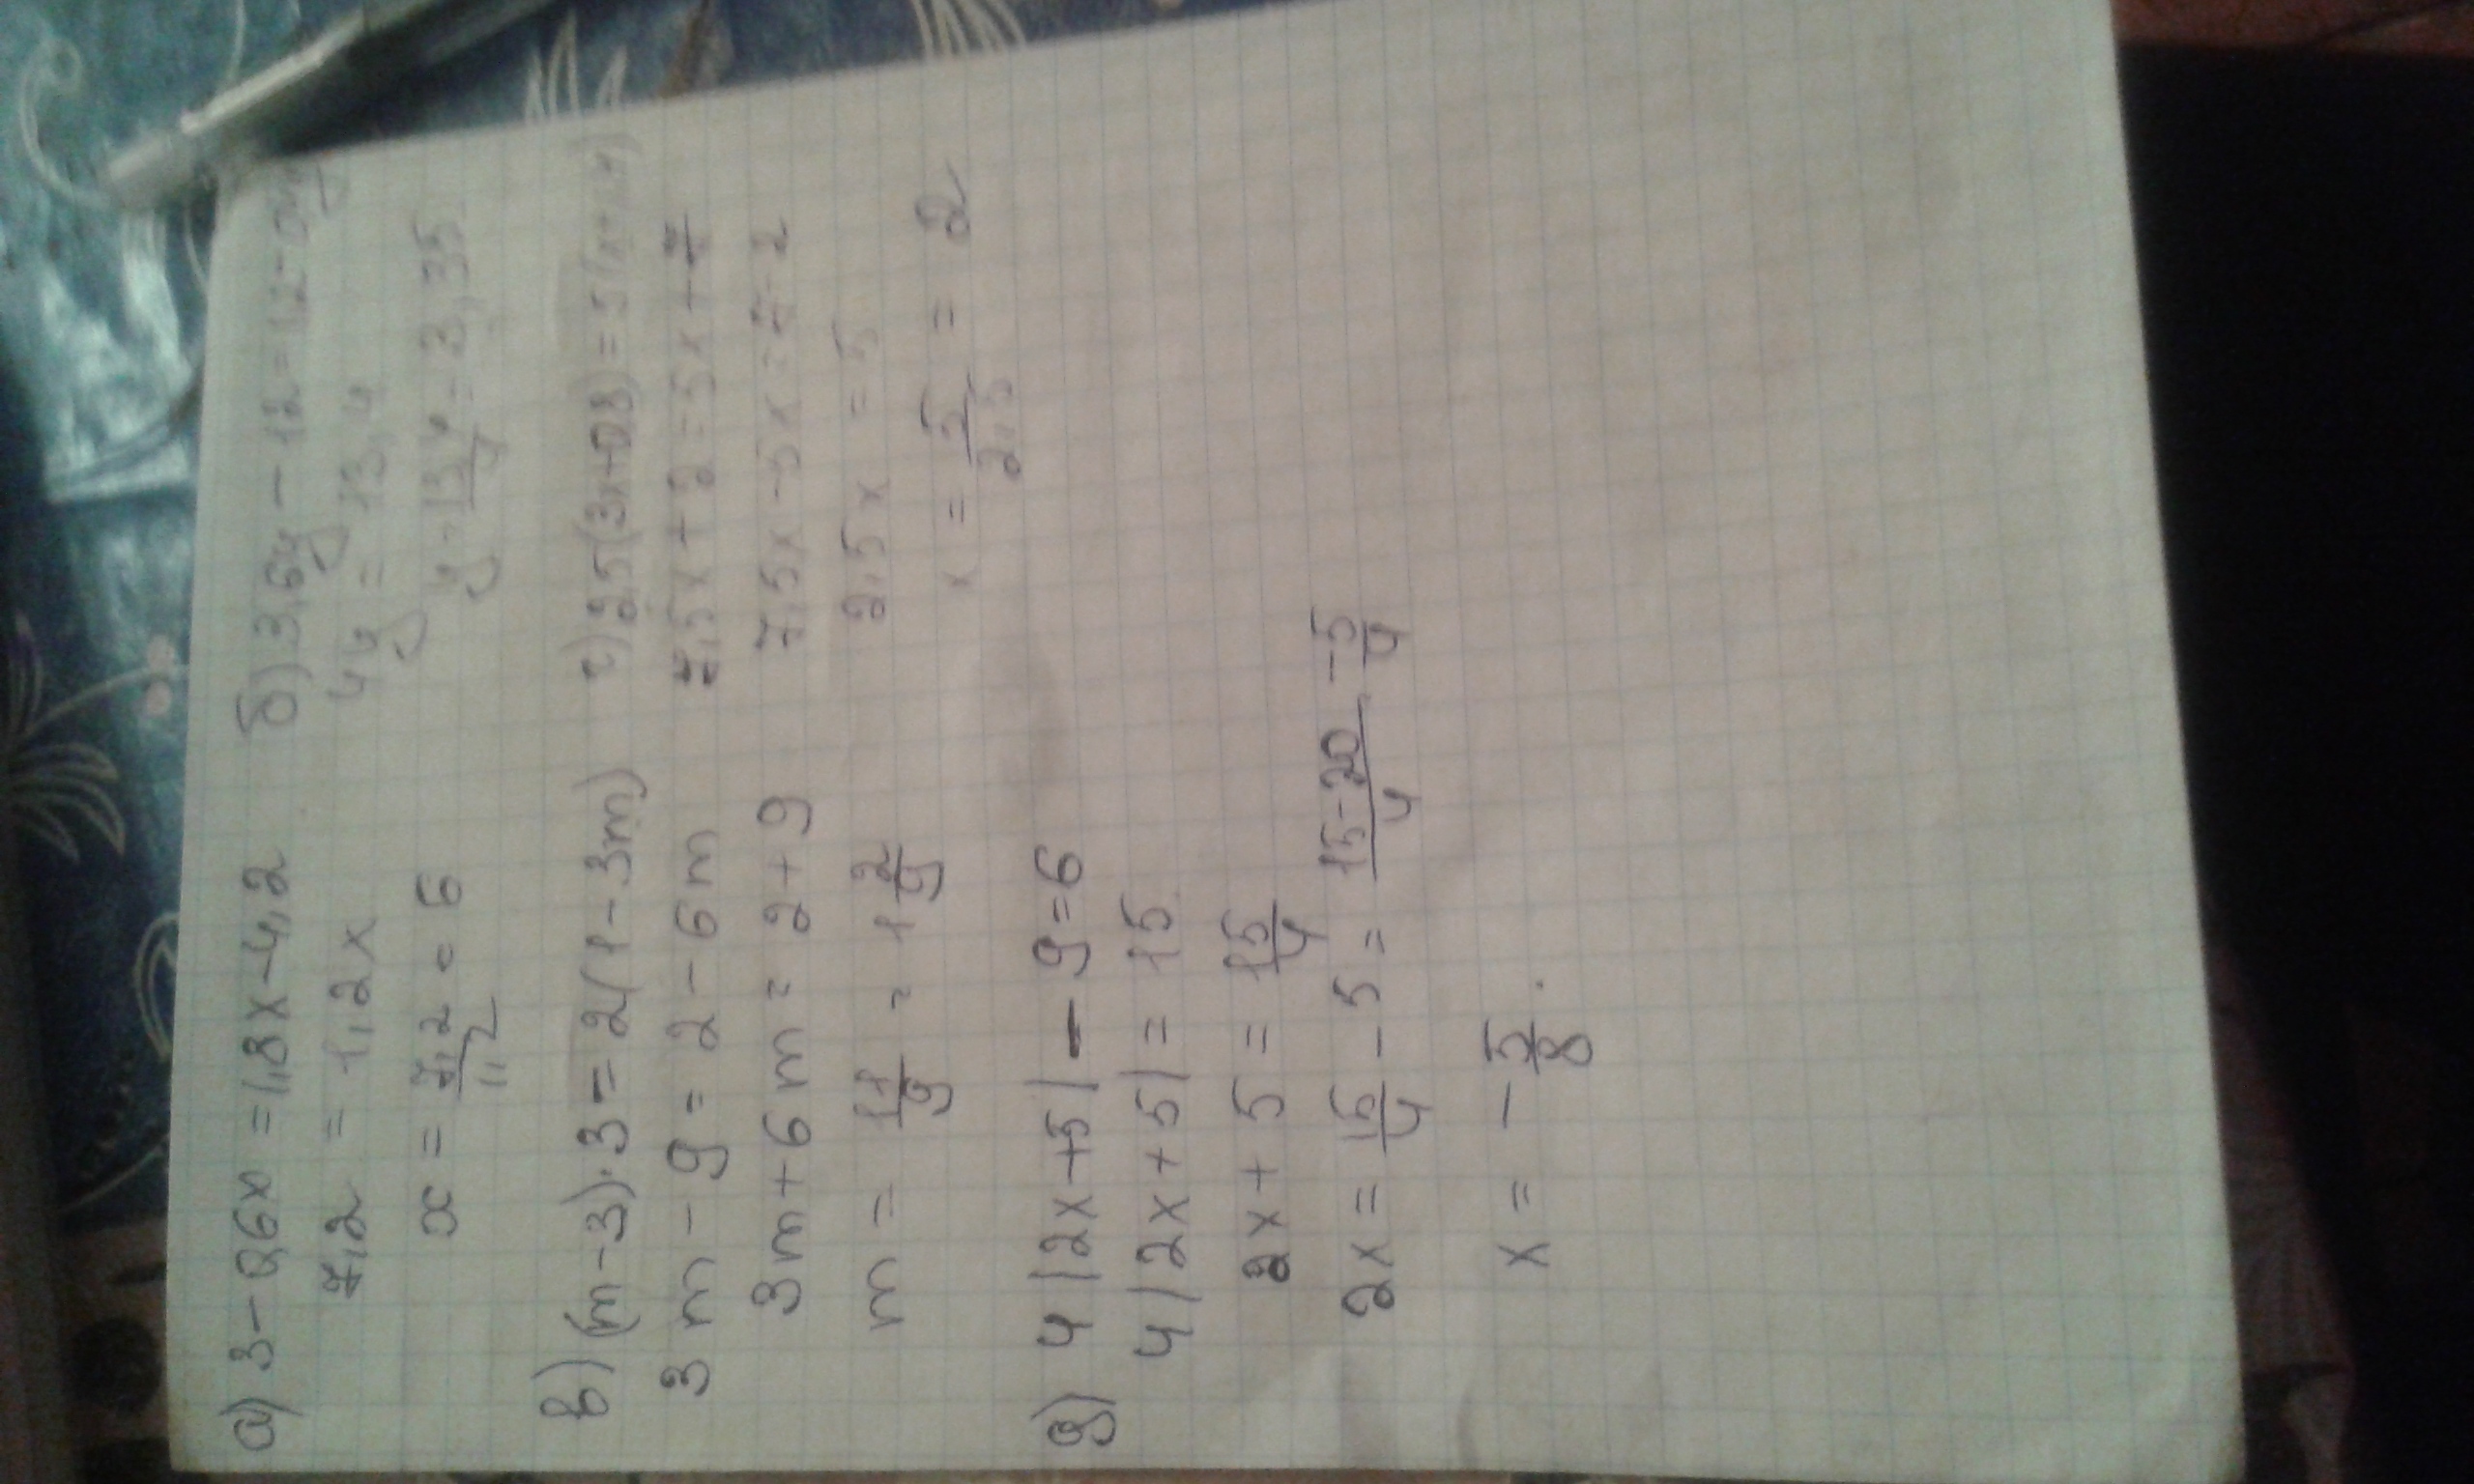 а) 3-0,6x=1,8x-4,2
7,2 = 1,2x
x = 7,2/1,2 = 6
б) 3,6y-12=1,2-0,4y
4y = 13,4
y = 13,4/4 = 3,35
в) (m-3)·3=2(1-3m)
3m-9=2-6m
3m+6m=2+9
m = 11/9 = 1 2/9
г) 2,5(3x+0,8)=5(x+1,4)
7,5x+2=5x+7
7,5x-5x=7-2
2,5x = 5
x = 5/2,5 = 2
д) 4|2x+5|-9=6
4|2x+5|=15
2x+5=15/4
2x=15/4-5=15-20/4 -5/4
x=-5/8.